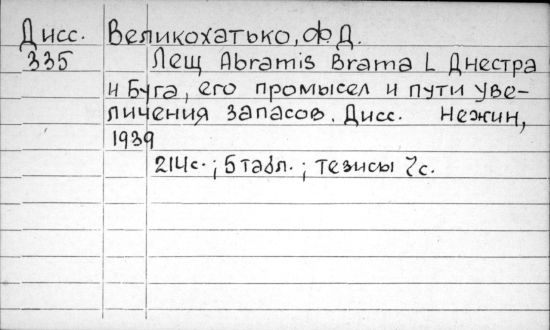 Дисс. Великохатько, Ф.Д.
335 Лещ Abramis Brama L Днестра
и Буга, его промысел и пути уве-
личения запасов. Дисс. Нежин,
1939
214с.; 5 табл.; тезисы 7с.